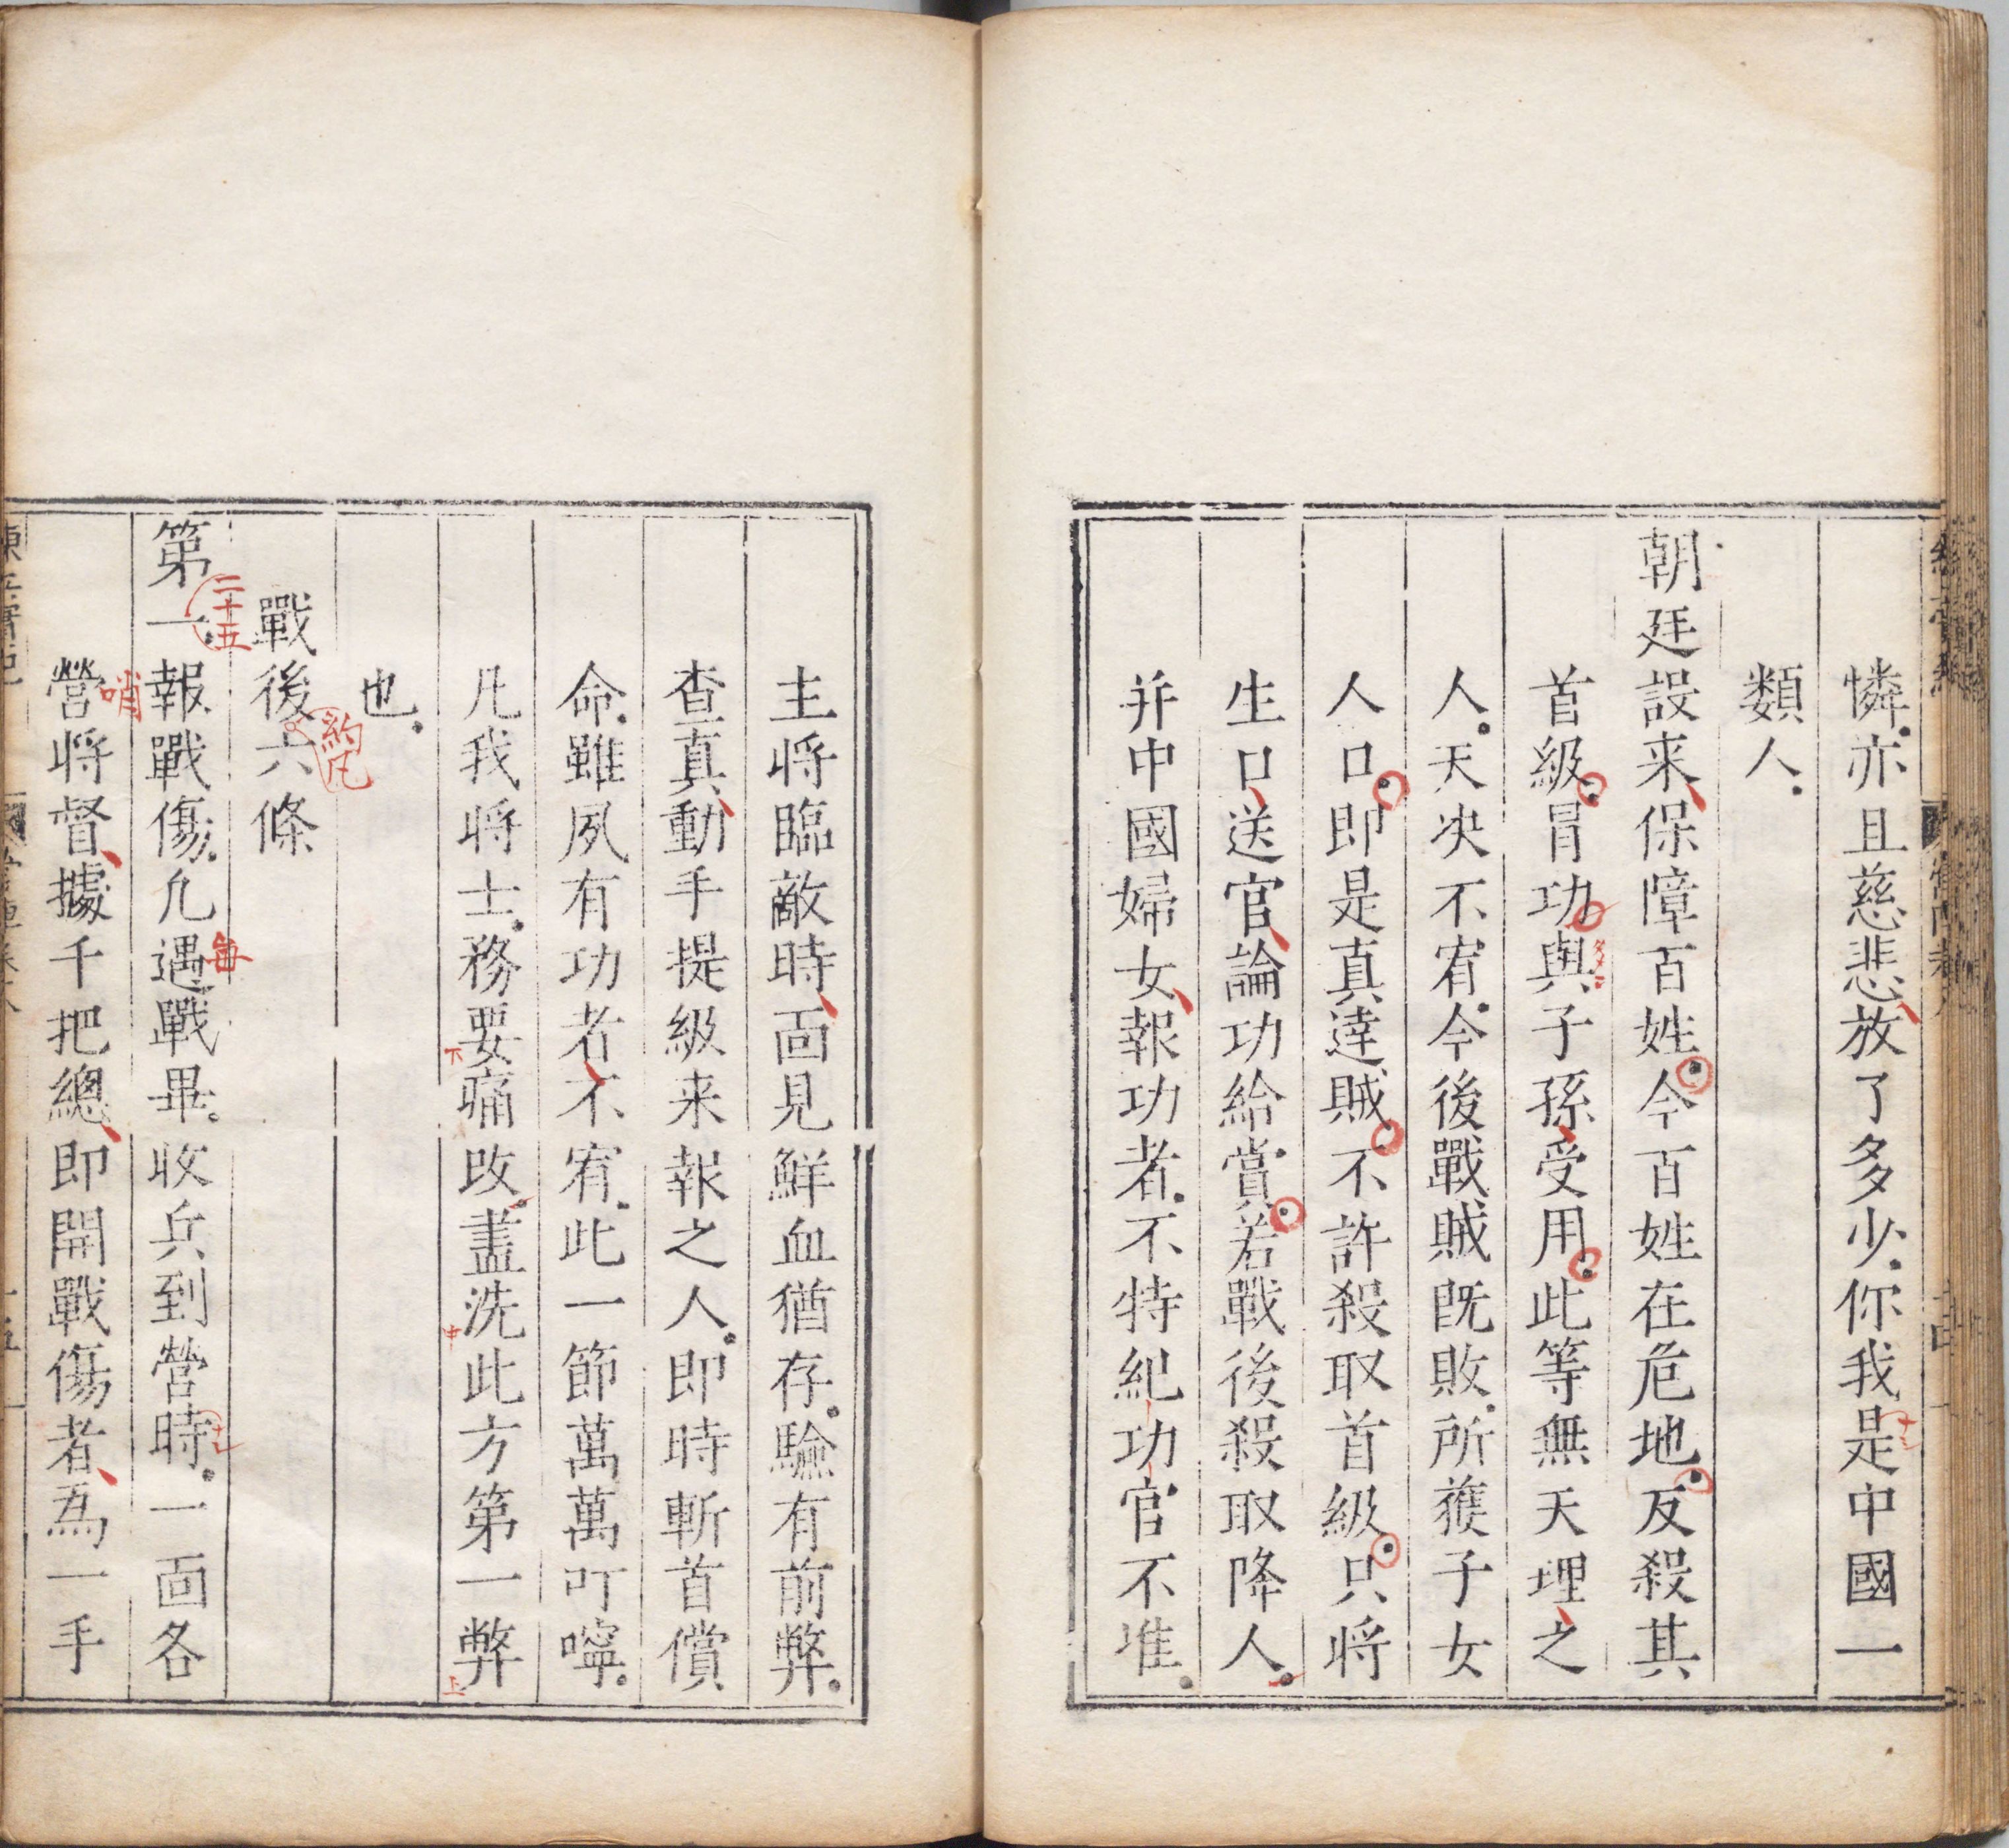 憐亦且慈悲放了多少你我是中國一
類人
朝廷設来保障百姓今百姓在危地反殺其
首級冒功與子孫受用此等無天理之
人天决不宥今後戰賊既敗所獲子女
人口即是真達賊不許殺取首級只将
生口送官論功給賞若戰後殺取降人
并中國婦女報功者不特紀功官不准
主将臨敵時面見鮮血猶存驗有前弊
查真動手提級来報之人即時斬首償
命雖夙有功者不宥此一節萬萬叮嚀
凡我将士務要痛改盡洗此方第一弊
也
戰後六條
約凡
第一報戰傷凢遇戰畢收兵到營時一面各
二十五
每
營将督據千把總即開戰傷者爲一手
哨